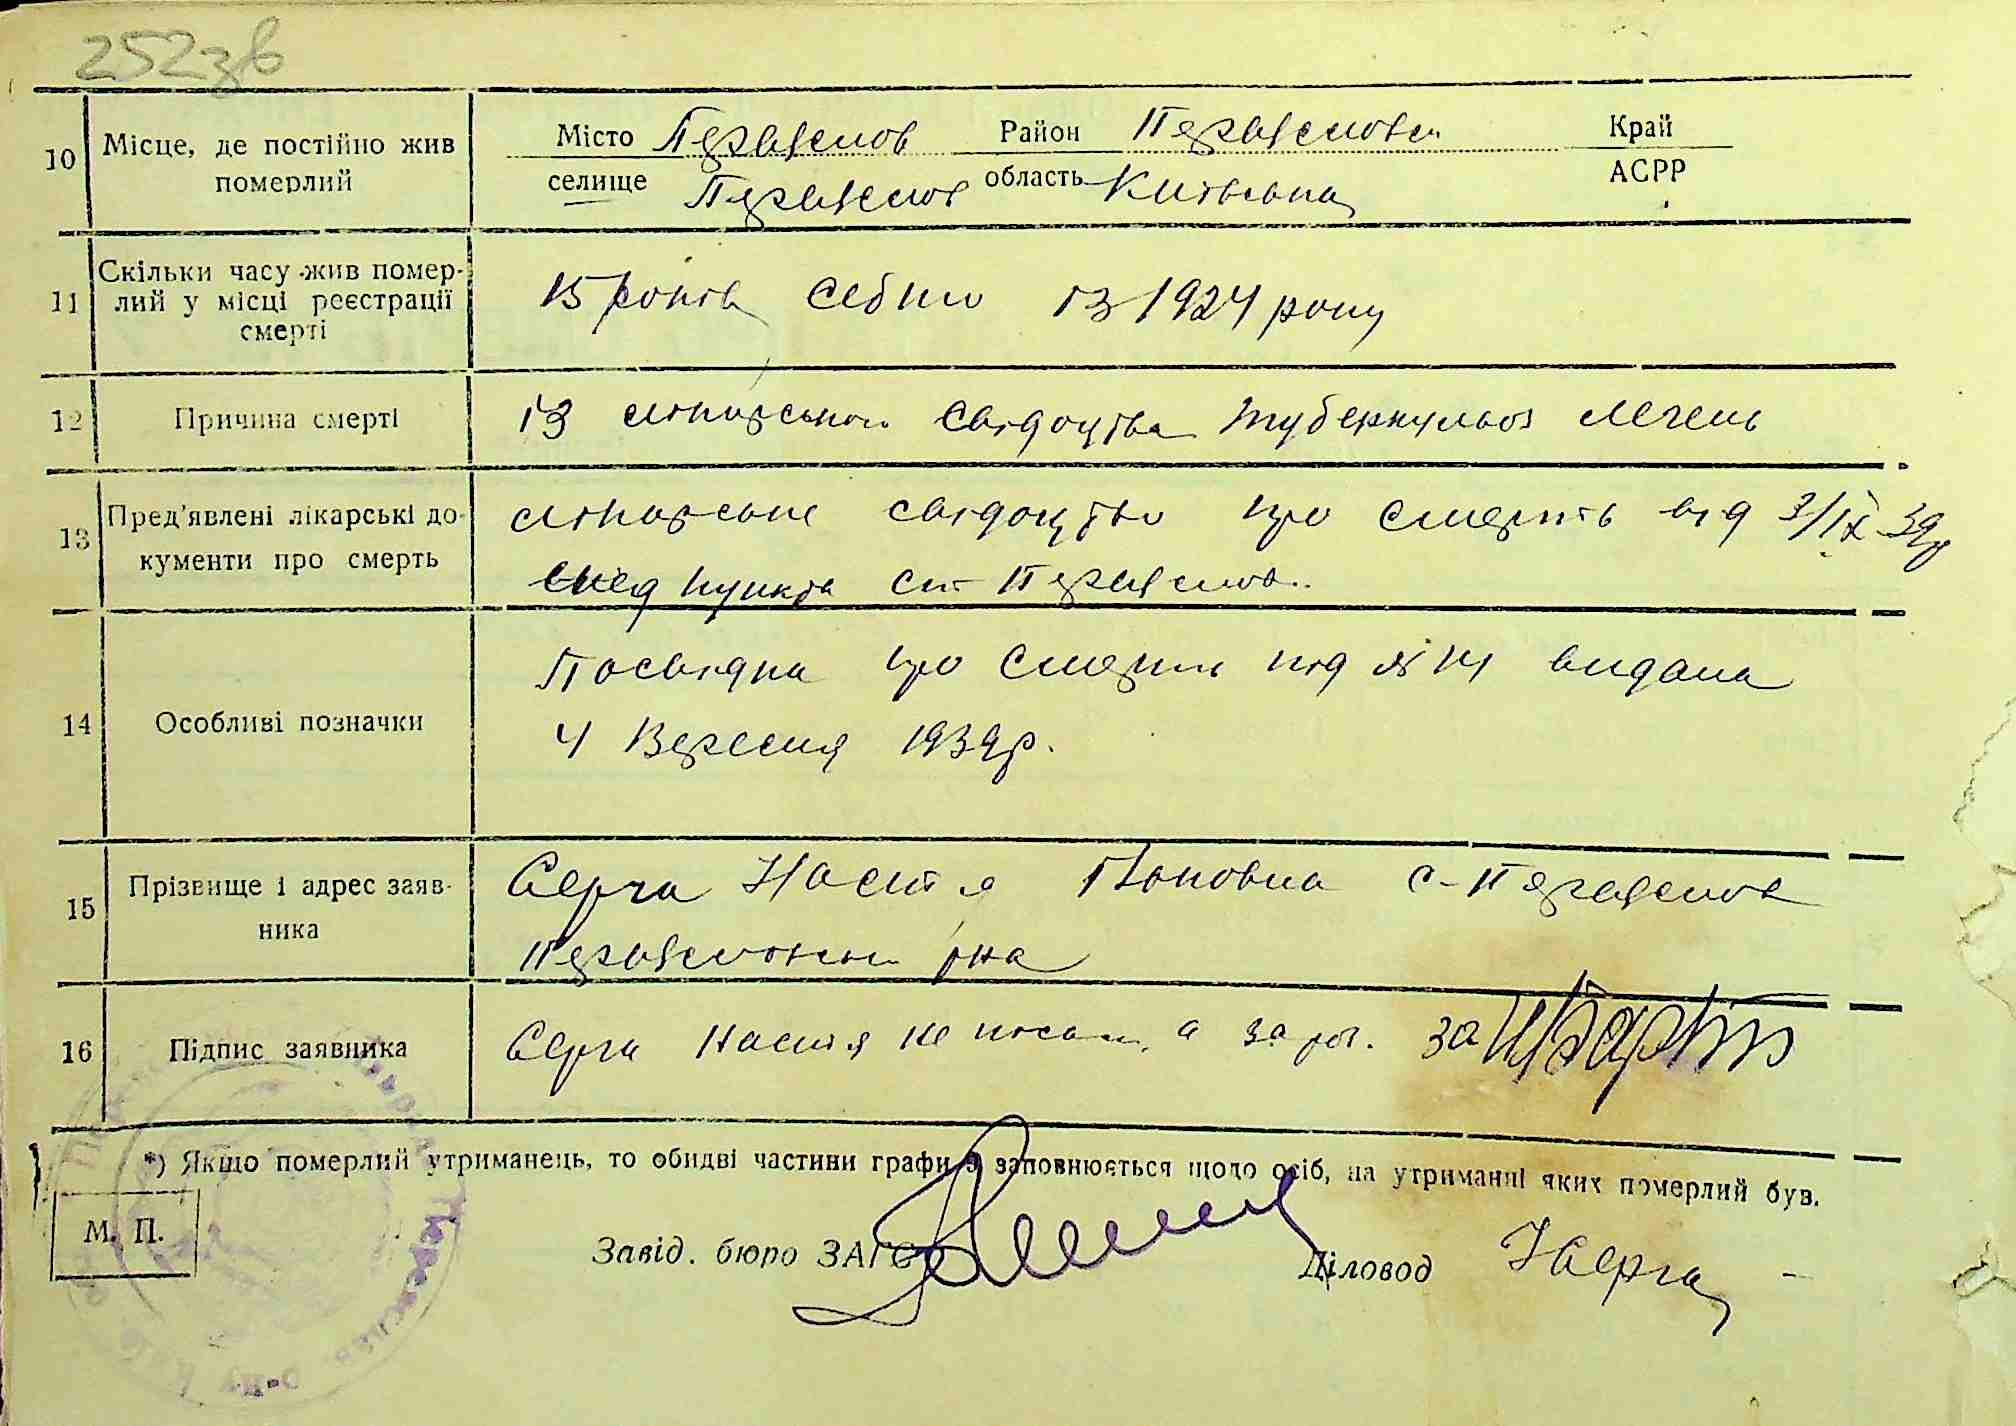 252зв
10 Місце, де постійно жив померлий
Місто Переяслов Район Переясловськ Край
селище Переяслов область Київська АСРР
11 Скільки часу жив помер-
лий у місці реєстрації
смерті
15 років себто із 1924 року
12 Причина смерті
із лікарського свідоцтва туберкульоз легень
13 Пред'явлені лікарські до-
кументи про смерть
лікарське свідоцтво про смерть від 3/IX-39р
пункта ст Переяслов.
14 Особливі позначки
Посвідка про смерть під № 14 видана
4 Вересня 1939р.
15 Прізвище і адрес заяв-
ника
Серга Настя с-Переяслов
Переясловськ рна
16 Підпис заявника
Серга Настя не а за
*) Якщо померлий утриманець, то обидві частини графи 9 заповнюється щодо осіб, на утриманні яких померлий був.
М. П.
Завід. бюро ЗАГС
Діловод